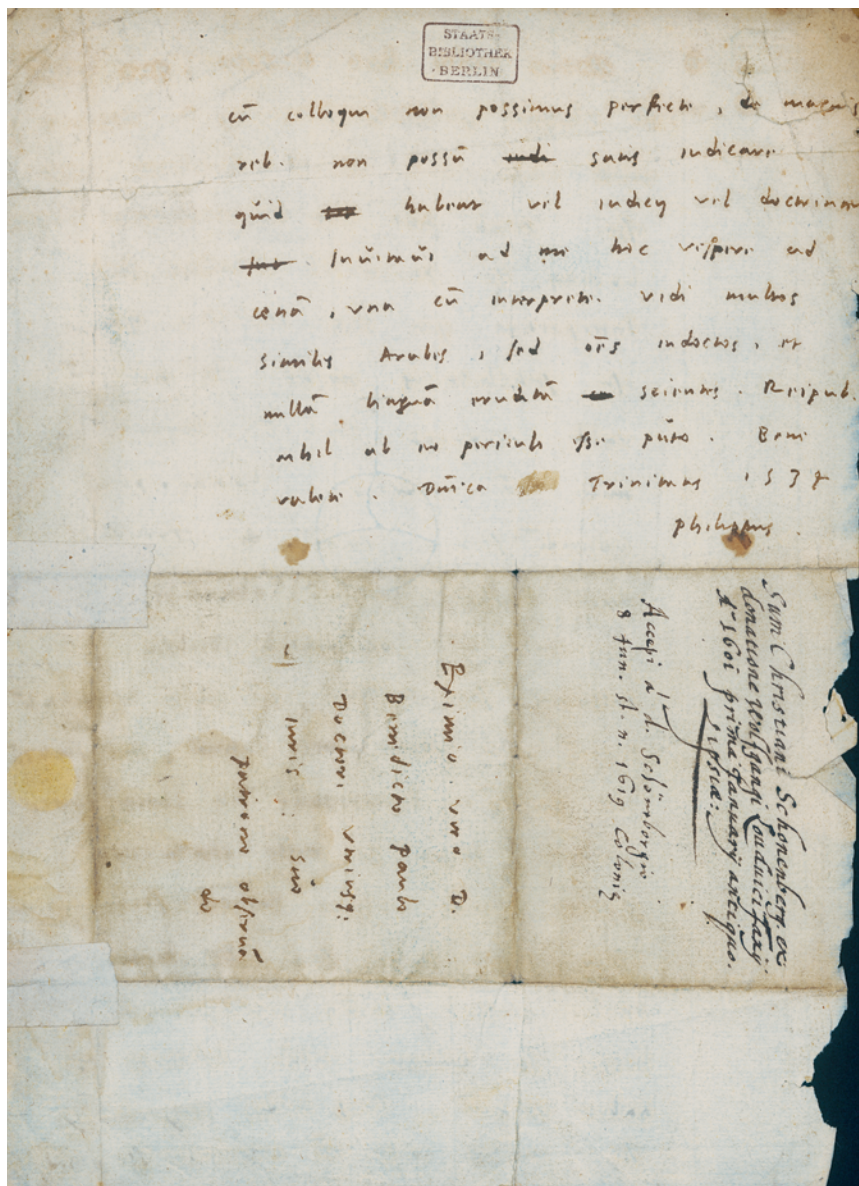 STAATS-
BIBLIOTHEK
· BERLIN ·
cū colloqui non possimus perfecte, de magnis
reb. non possū iudi satis iudicare
quid habeat vel iudicij vel doctrinae
Inuitaui ad me hoc vespere ad
cenā, vna cū interprete. vidi multos
similes Arabes, sed oēs indoctos, et
nullā linguā eruditā scientes. Reipub.
nihil ab eo periculi esse puto. Bene
valete. Dñica Trinitatis 1537
philippus.
Sum Christiani Schönenberg. ex
donatione Wolfgangi Loudvici
Aº 1601 prima Januarij antiquo.
Lipsiæ:
Accepi a d. Schönborgio
8 Jun. st. n. 1619 Colonię
Eximio. viro D.
Benedicto Paulo
Doctori vtriusq:
iuris: suo
patrono obseruā
do